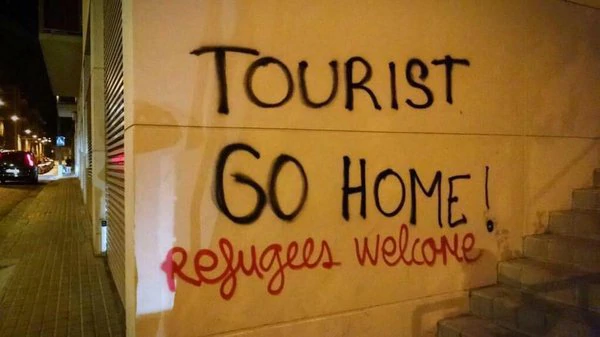 TOURIST
GO HOME!
refugees welcome